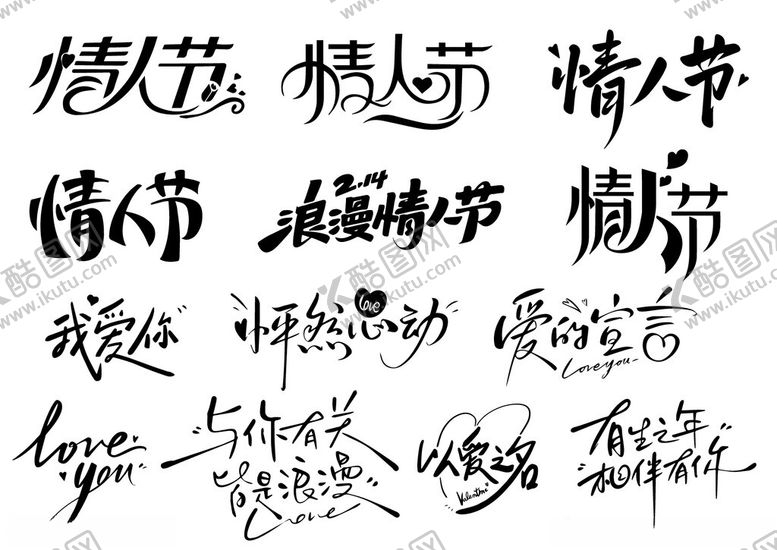 情人节
情人节
情人节
情人节
2.14
浪漫情人节
情人节
我爱你
怦然心动
love
爱的宣言
Loveyou
love
you
与你有关
皆是浪漫
Love
以爱之名
Valentine
有生之年
相伴有你
酷图网
www.ikutu.com